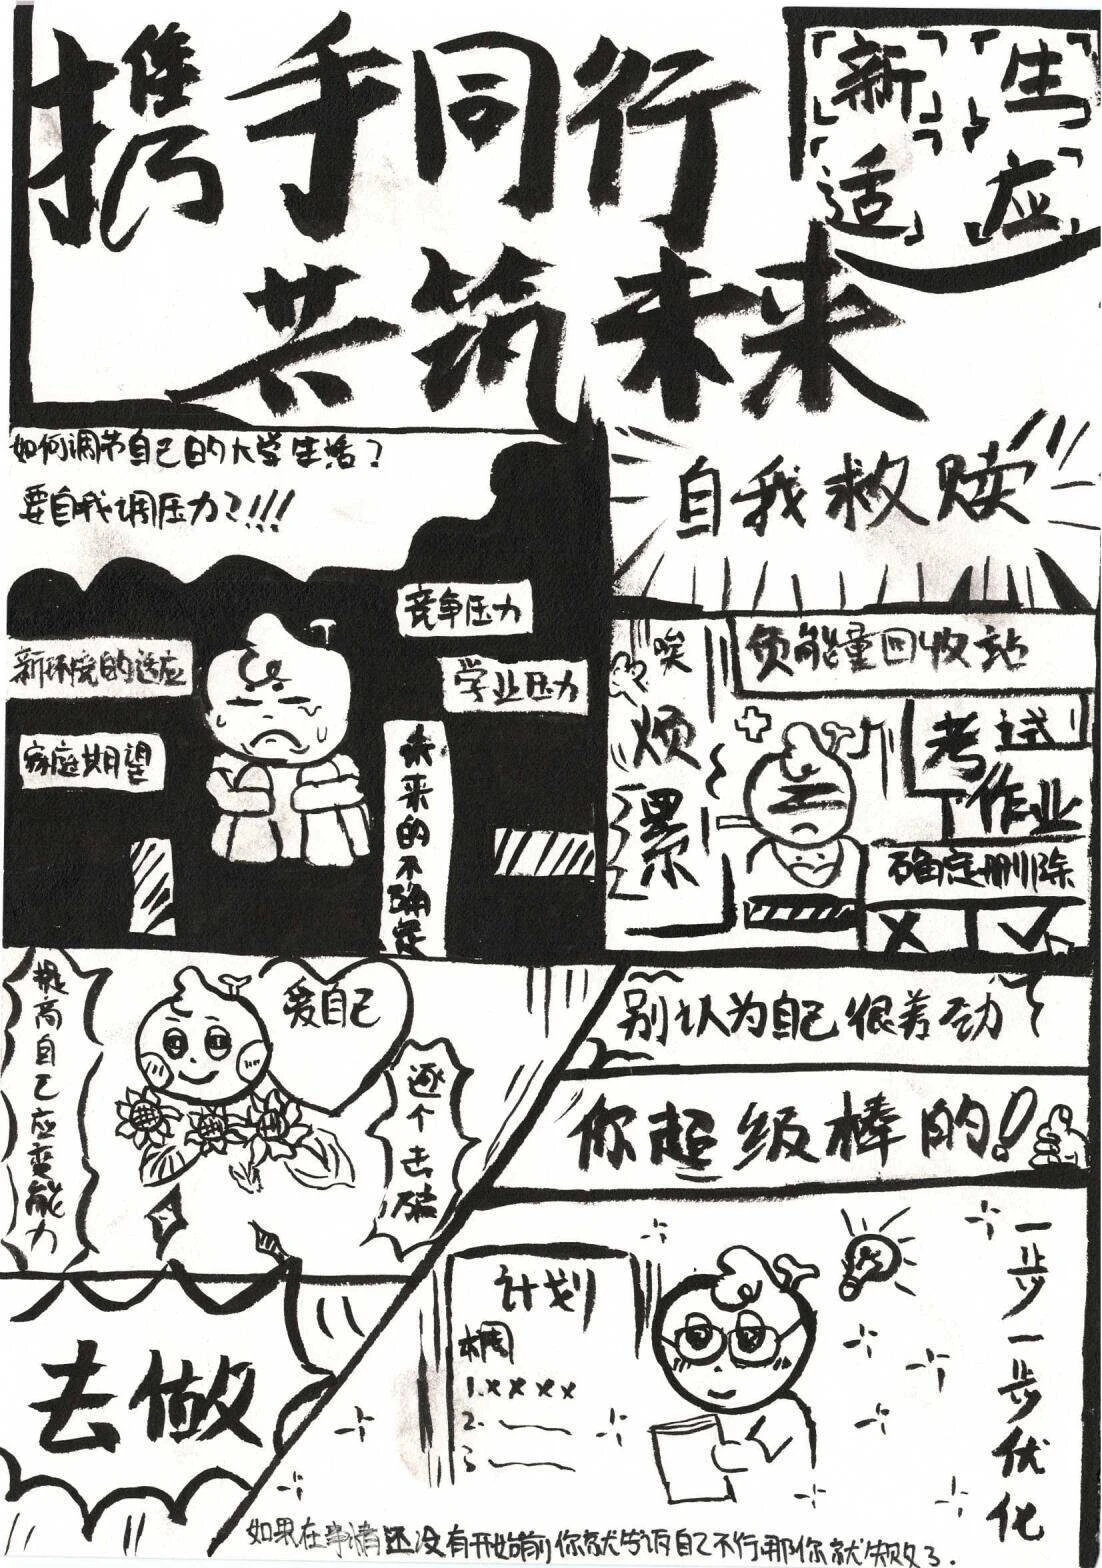 携手同行
共筑未来
新生
适应
如何调节自己的大学生活？
要自我调压力？!!!
竞争压力
新环境的适应
学业压力
家庭期望
未来的不确定
自我救赎
唉
烦
累
负能量回收站
考试
作业
确定删除
提高自己应变能力
爱自己
逐个去破
别认为自己很差劲
你超级棒的！
去做
计划
本周
1.xxxx
2.
3
一步一步优化
如果在事情还没有开始前你就告诉自己不行.那你就失败了.